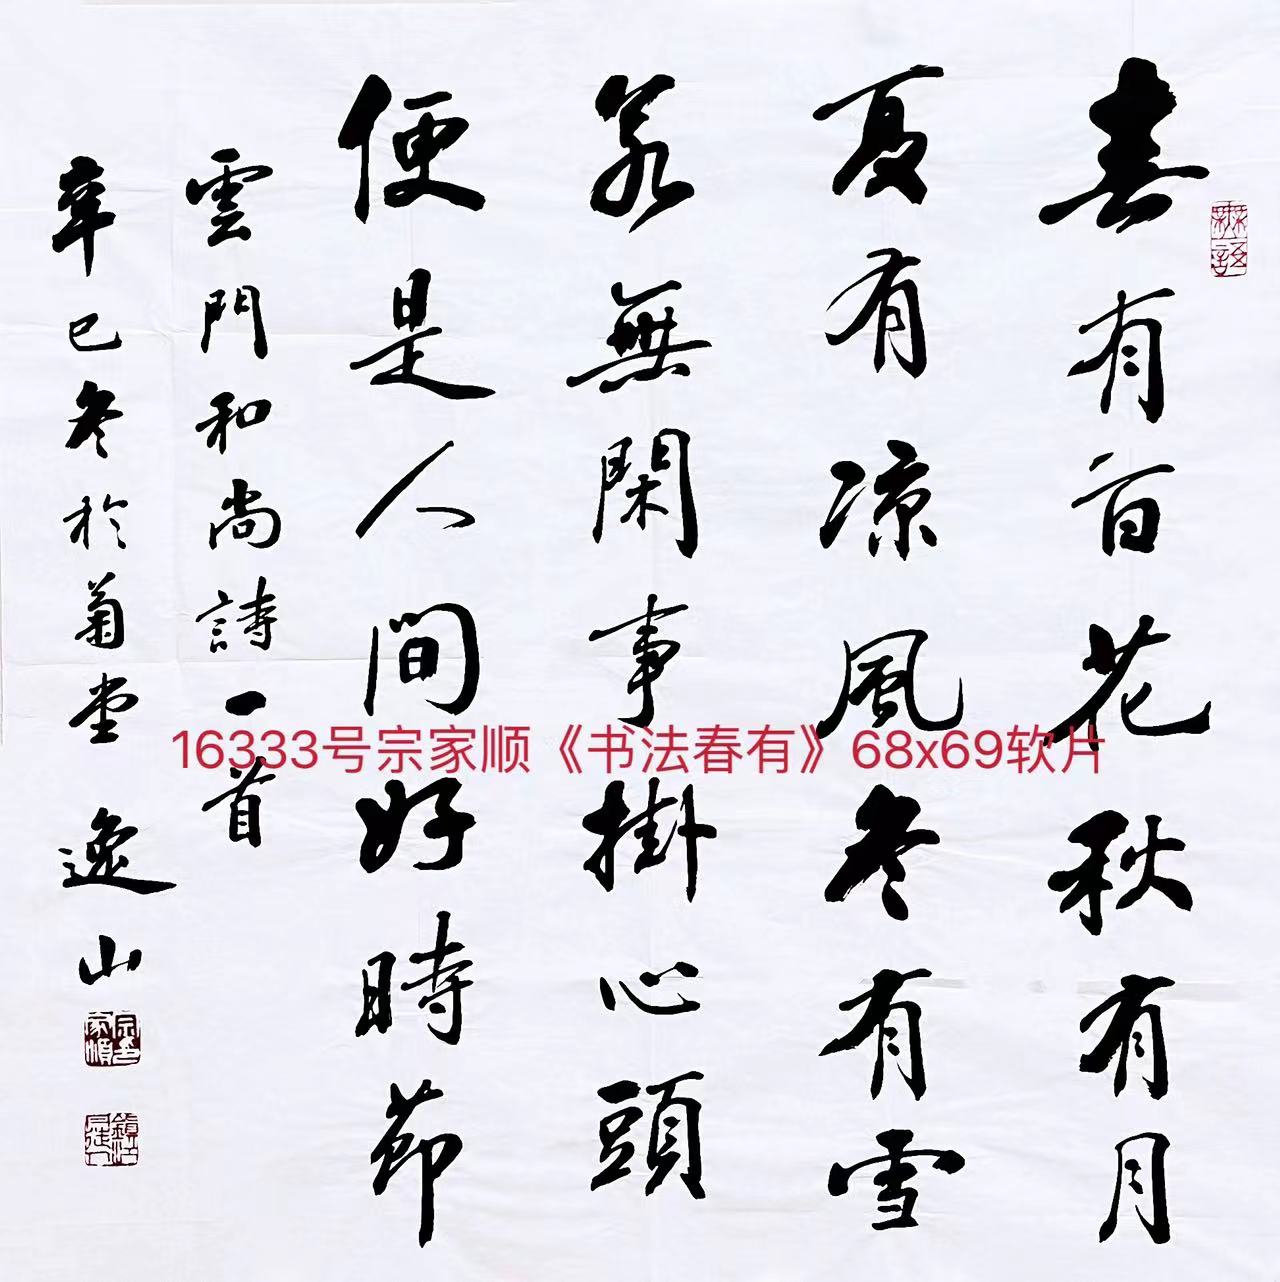 春有百花秋有月
夏有凉風冬有雪
若無閑事掛心頭
便是人間好時節
雲門和尚詩一首
辛巳冬於菊堂 逸山
宗家順印
16333号宗家顺《书法春有》68x69软片